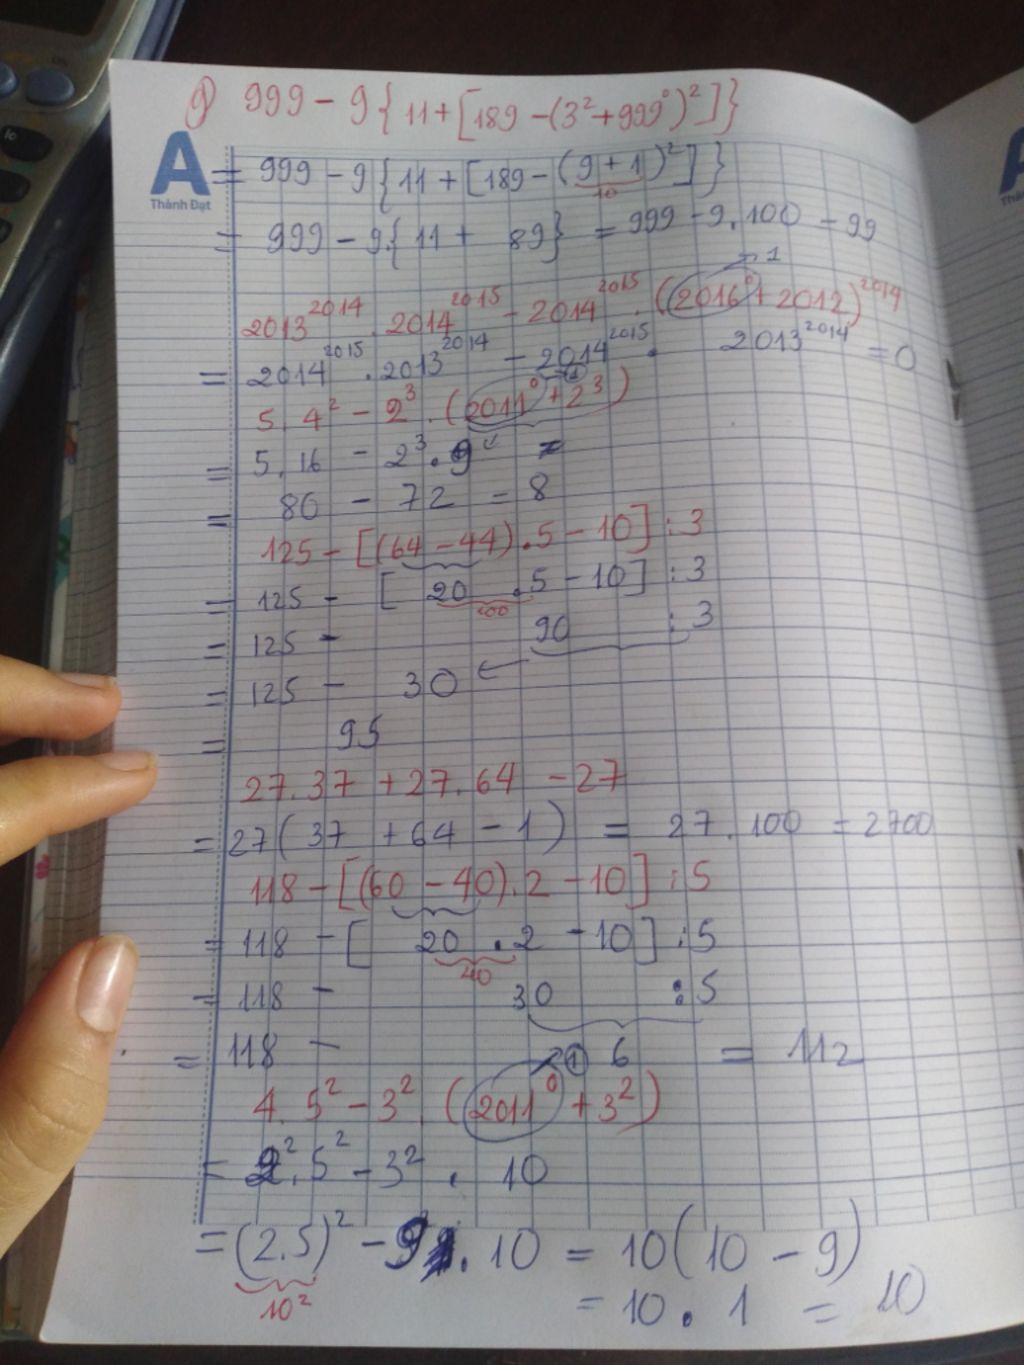 g) 999 - 9{11+[189-(3²+999⁰)²]}
A
Thành Đạt
= 999 - 9{11 + [189 - (9+1)²]}
10
= 999 - 9.{11 + 89} = 999 - 9.100 = 99
→ 1
2013²⁰¹⁴ . 2014²⁰¹⁵ - 2014²⁰¹⁵ . (2016⁰ + 2012)²⁰¹⁴
= 2014²⁰¹⁵ . 2013²⁰¹⁴ - 2014²⁰¹⁵ . 2013²⁰¹⁴ = 0
→ 1
5.4² - 2³ . (2011⁰ + 2³)
= 5.16 - 2³ . 9
= 80 - 72 = 8
125 - [(64 - 44) . 5 - 10] : 3
= 125 - [ 20 . 5 - 10] : 3
100
= 125 - 90 : 3
= 125 - 30 ←
= 95
27.37 + 27.64 - 27
= 27(37 + 64 - 1) = 27.100 = 2700
118 - [(60 - 40).2 - 10] : 5
= 118 - [ 20 . 2 - 10] : 5
40
= 118 - 30 : 5
= 118 - 6 = 112
→ 1
4.5² - 3² . (2011⁰ + 3²)
= 2².5² - 3² . 10
= (2.5)² - 9 . 10 = 10(10 - 9)
10²
= 10 . 1 = 10